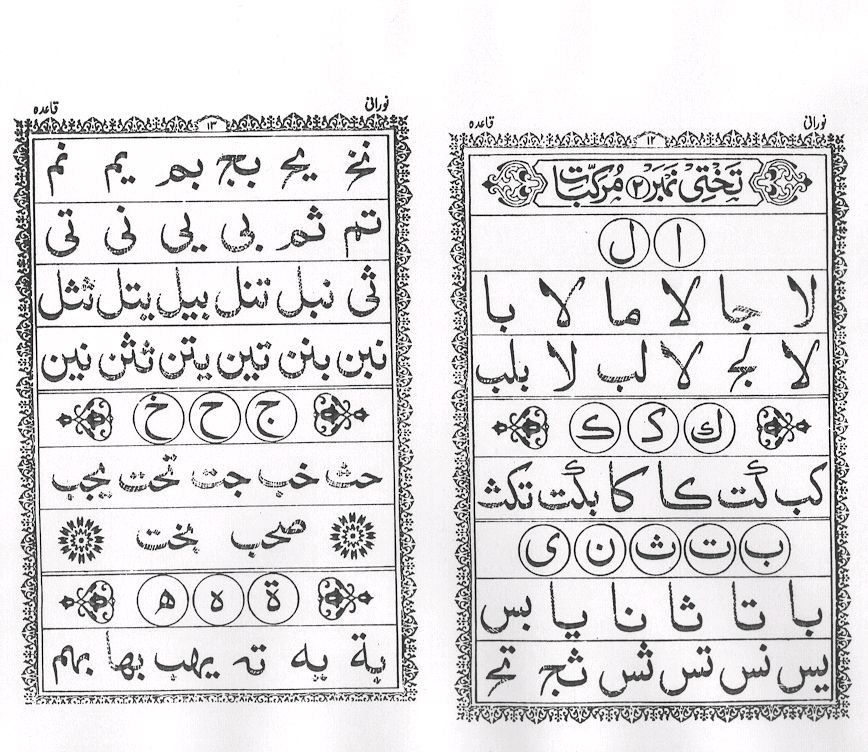 نورانی قاعدہ
۱۲
تَختِی نمبَر ۲ مُرکبّات
ا ل
لا جا لا ما لا با
لا لج لا لب لا بلب
ك ک ک
کب کت کا کا بکت تکث
ب ت ث ن ی
با تا ثا نا یا بس
یس نس تس ثس ثج تح
نورانی قاعدہ
۱۳
نخ یح بج بم یم نم
تم ثم بی یی نی تی
ثی نبل تنل بیل یتل نثل
نبن بنن تین یتن ثثن نین
ج ح خ
حث خب جت تحت یجب
صحب یخت
ة ه ھ
یة یه ته یهب بها